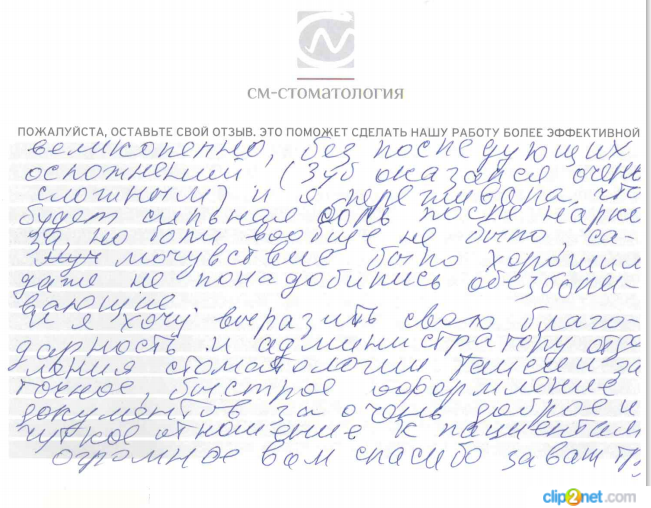 СМ-СТОМАТОЛОГИЯ
ПОЖАЛУЙСТА, ОСТАВЬТЕ СВОЙ ОТЗЫВ. ЭТО ПОМОЖЕТ СДЕЛАТЬ НАШУ РАБОТУ БОЛЕЕ ЭФФЕКТИВНОЙ
великолепно, без последующих
осложнений (зуб оказался очень
сложным) и я переживала, что
будет сильная боль после нарко
за, но боли вообще не было, са-
мочувствие было хорошим
даже не понадобились обезболи-
вающие.
и я хочу выразить свою благо-
дарность и администратору отде
ления стоматологии за
точное, быстрое оформление
документов за очень доброе и
чуткое отношение к пациентам
огромное вам спасибо за ваш тр
clip2net.com